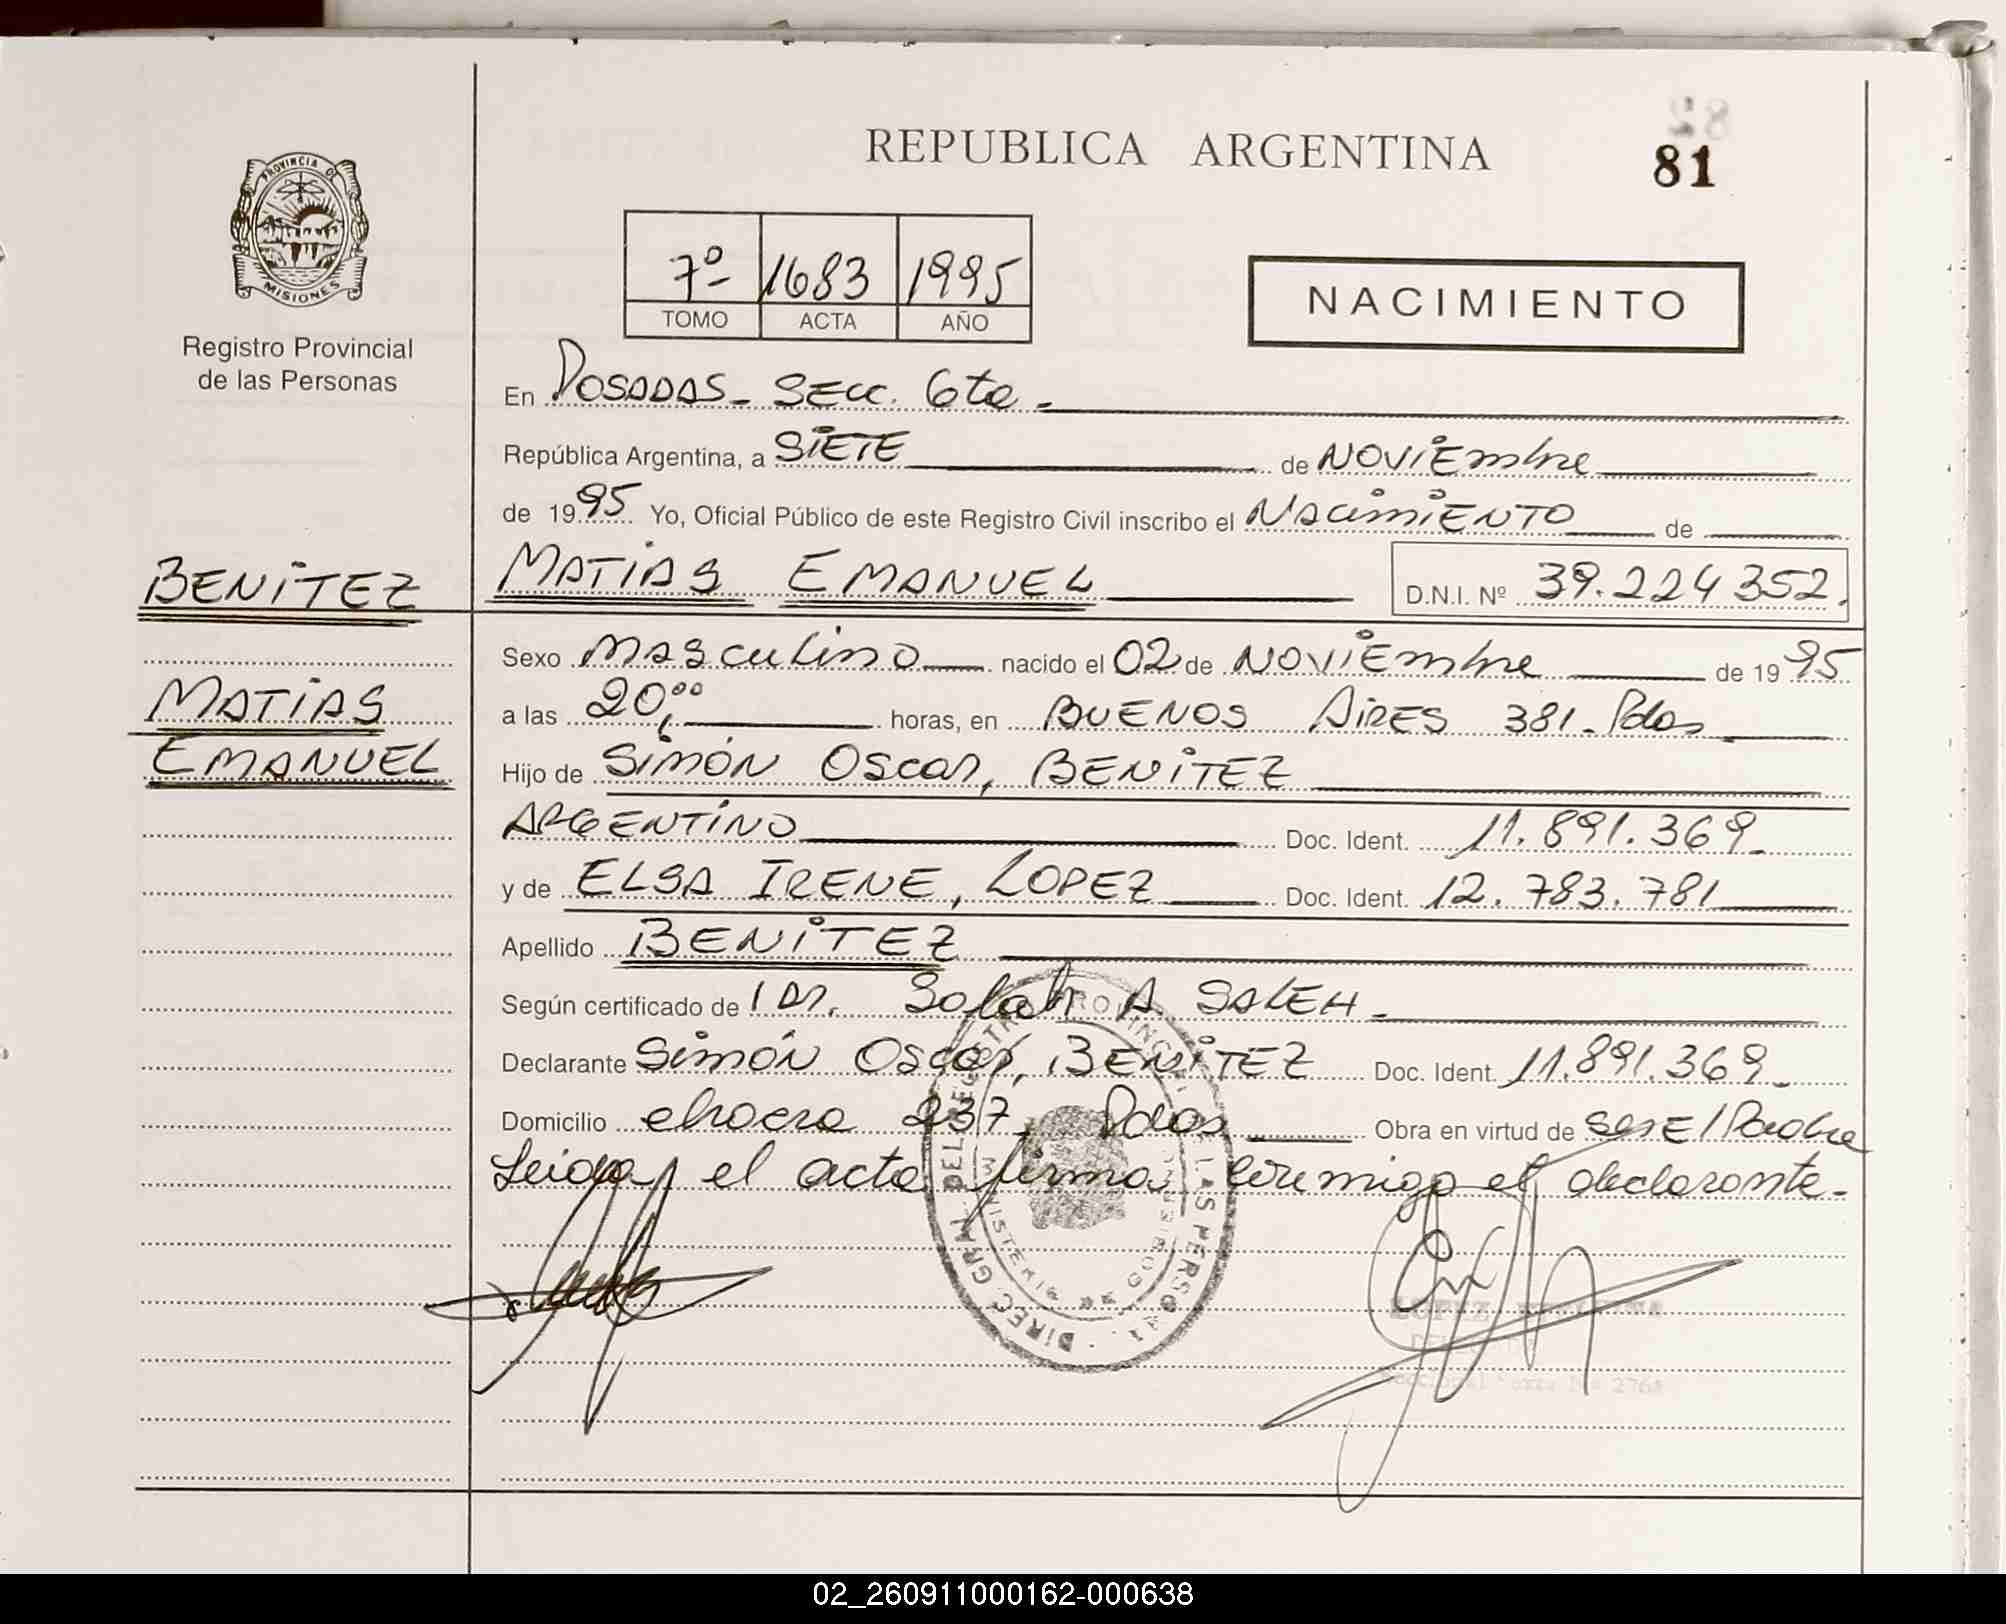 82
81
REPUBLICA ARGENTINA
PROVINCIA DE
MISIONES
Registro Provincial
de las Personas
7º 1683 1995
TOMO ACTA AÑO
NACIMIENTO
En Posadas - Secc. 6ta.
República Argentina, a SIETE de NOVIEmbre
de 1995 Yo, Oficial Público de este Registro Civil inscribo el NacimiENTO de
BENITEZ
MATIAS EMANUEL D.N.I. Nº 39.224 352.
Sexo masculino nacido el 02 de NOVIEmbre de 1995
MATIAS
EMANUEL
a las 20,ºº horas, en BUENOS AIRES 381. Pdas
Hijo de Simón Oscar, BENITEZ
ARGENTINO Doc. Ident. 11.891.369
y de ELSA IRENE, LOPEZ Doc. Ident. 12.783.781
Apellido BENITEZ
Según certificado de Dr. Salah A SALEH
Declarante Simón Oscar, BENITEZ Doc. Ident. 11.891.369
Domicilio 237, Pdas Obra en virtud de
Leida el acta firma conmigo el declarante.
DIREC. GRAL. DEL REGISTRO PROVINCIAL DE LAS PERSONAS
MINISTERIO DE GOBIERNO
LOPEZ
2768
02_260911000162-000638